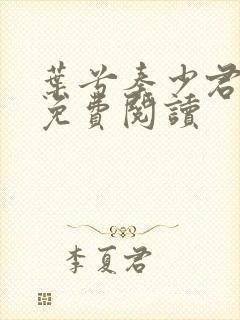 葉苦秦少君
免費閱讀
李夏君